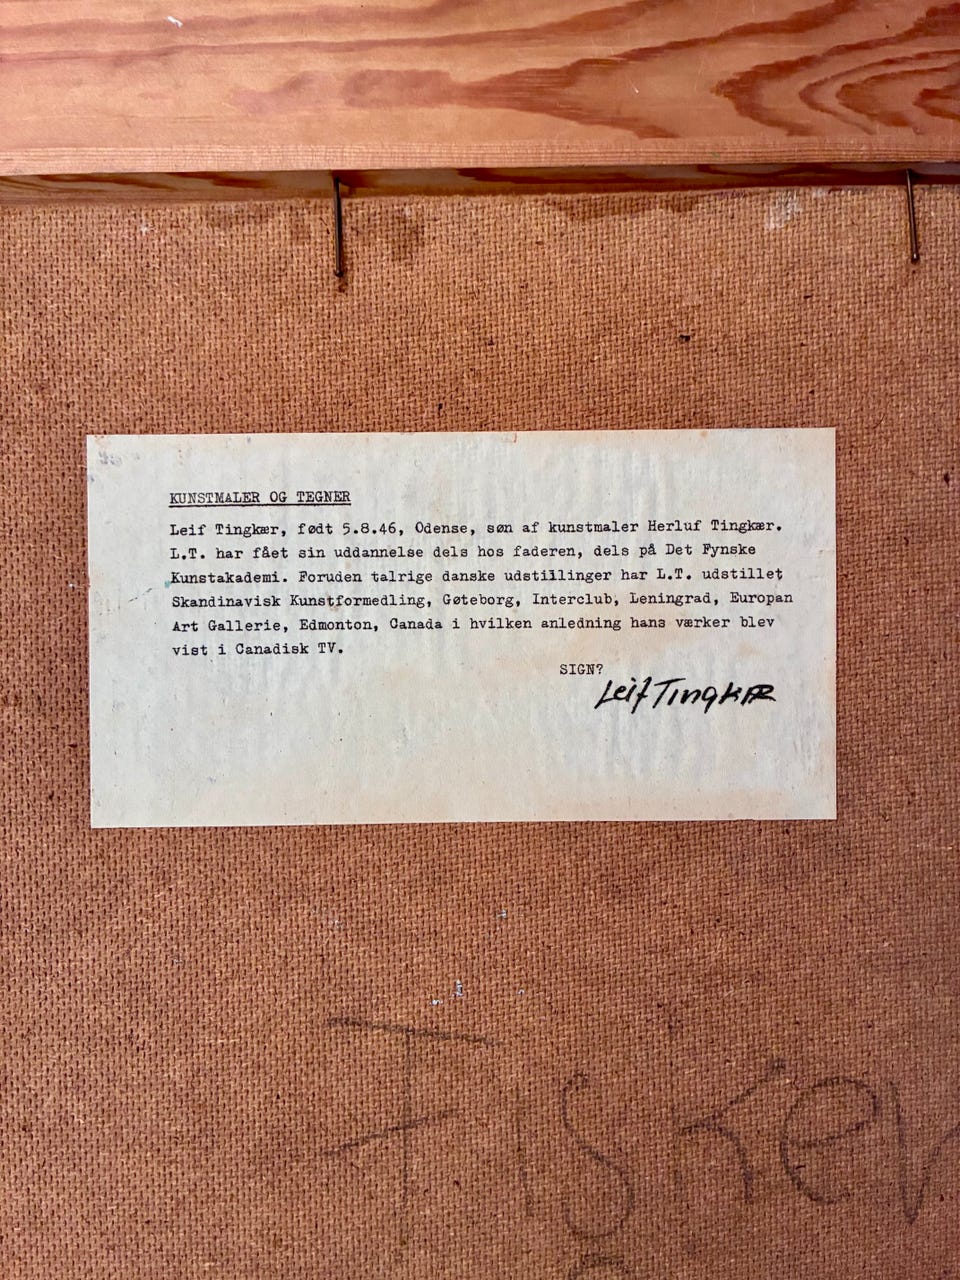 KUNSTMALER OG TEGNER
Leif Tingkær, født 5.8.46, Odense, søn af kunstmaler Herluf Tingkær.
L.T. har fået sin uddannelse dels hos faderen, dels på Det Fynske
Kunstakademi. Foruden talrige danske udstillinger har L.T. udstillet
Skandinavisk Kunstformedling, Gøteborg, Interclub, Leningrad, Europan
Art Gallerie, Edmonton, Canada i hvilken anledning hans værker blev
vist i Canadisk TV.
SIGN?
Leif Tingkær